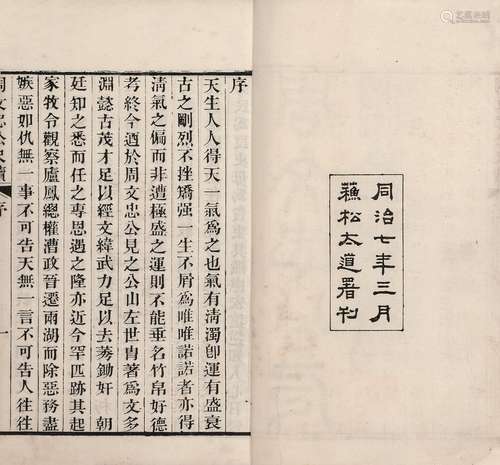 同治七年三月
蘓松太道署刊
序
天生人人得天一氣爲之也氣有淸濁卽運有盛衰
古之剛烈不挫矯强一生不屑爲唯唯諾諾者亦得
淸氣之偏而非遭極盛之運則不能垂名竹帛好德
考終今迺於周文忠公見之公山左世冑著爲文多
淵懿古茂才足以經文緯武力足以去莠鋤奸 朝
廷知之悉而任之專恩遇之隆亦近今罕匹跡其起
家牧令觀察廬鳳總權漕政晉遷兩湖而除惡務盡
嫉惡如仇無一事不可告天無一言不可告人往往
周文忠公尺牘 序 一